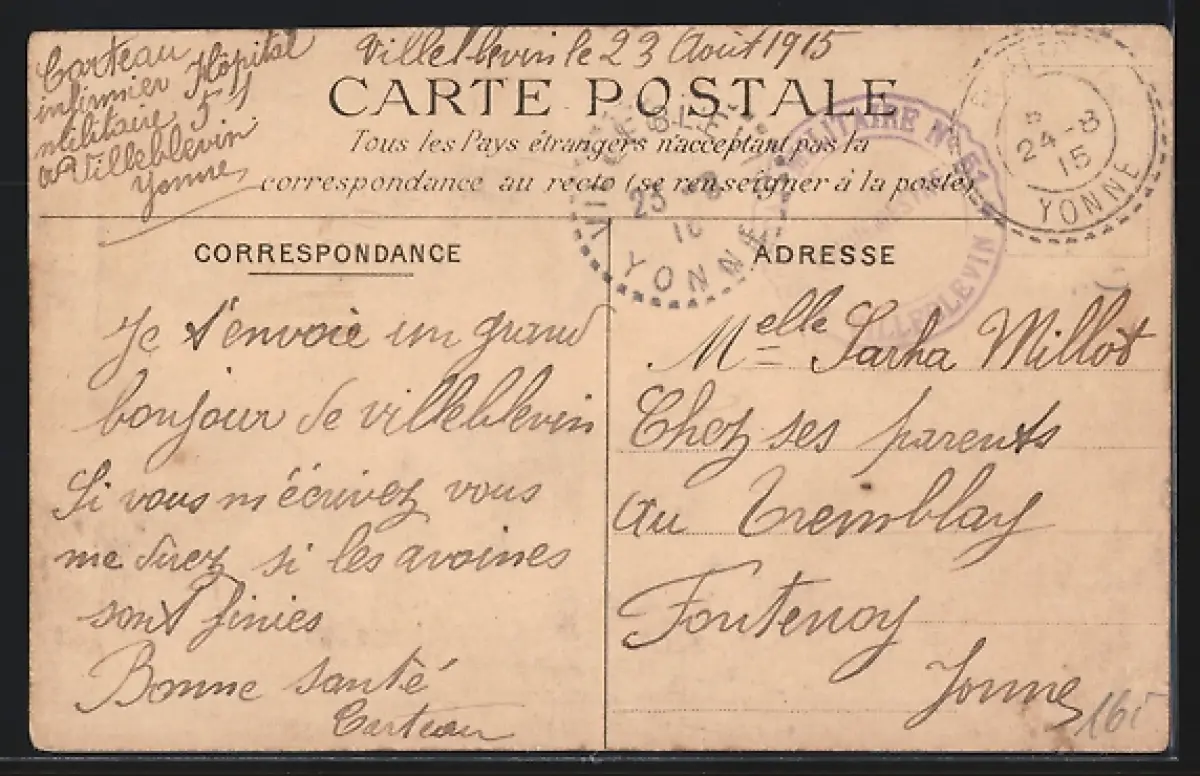 Villeblevin le 23 Août 1915
Carteau
infirmier Hôpital
militaire 51
à Villeblevin
Yonne
CARTE POSTALE
Tous les Pays étrangers n'acceptent pas la
correspondance au recto (se renseigner à la poste)
VILLEBLEVIN
23 -8
15
YONNE
MILITAIRE No 51
VILLEBLEVIN
24 -8
15
YONNE
CORRESPONDANCE
Je t'envoie un grand
bonjour de villeblevin
Si vous m'écrivez vous
me direz si les avoines
sont finies
Bonne santé
Carteau
ADRESSE
Melle Sarha Millot
Chez ses parents
au Tremblay
Fontenoy
Yonne